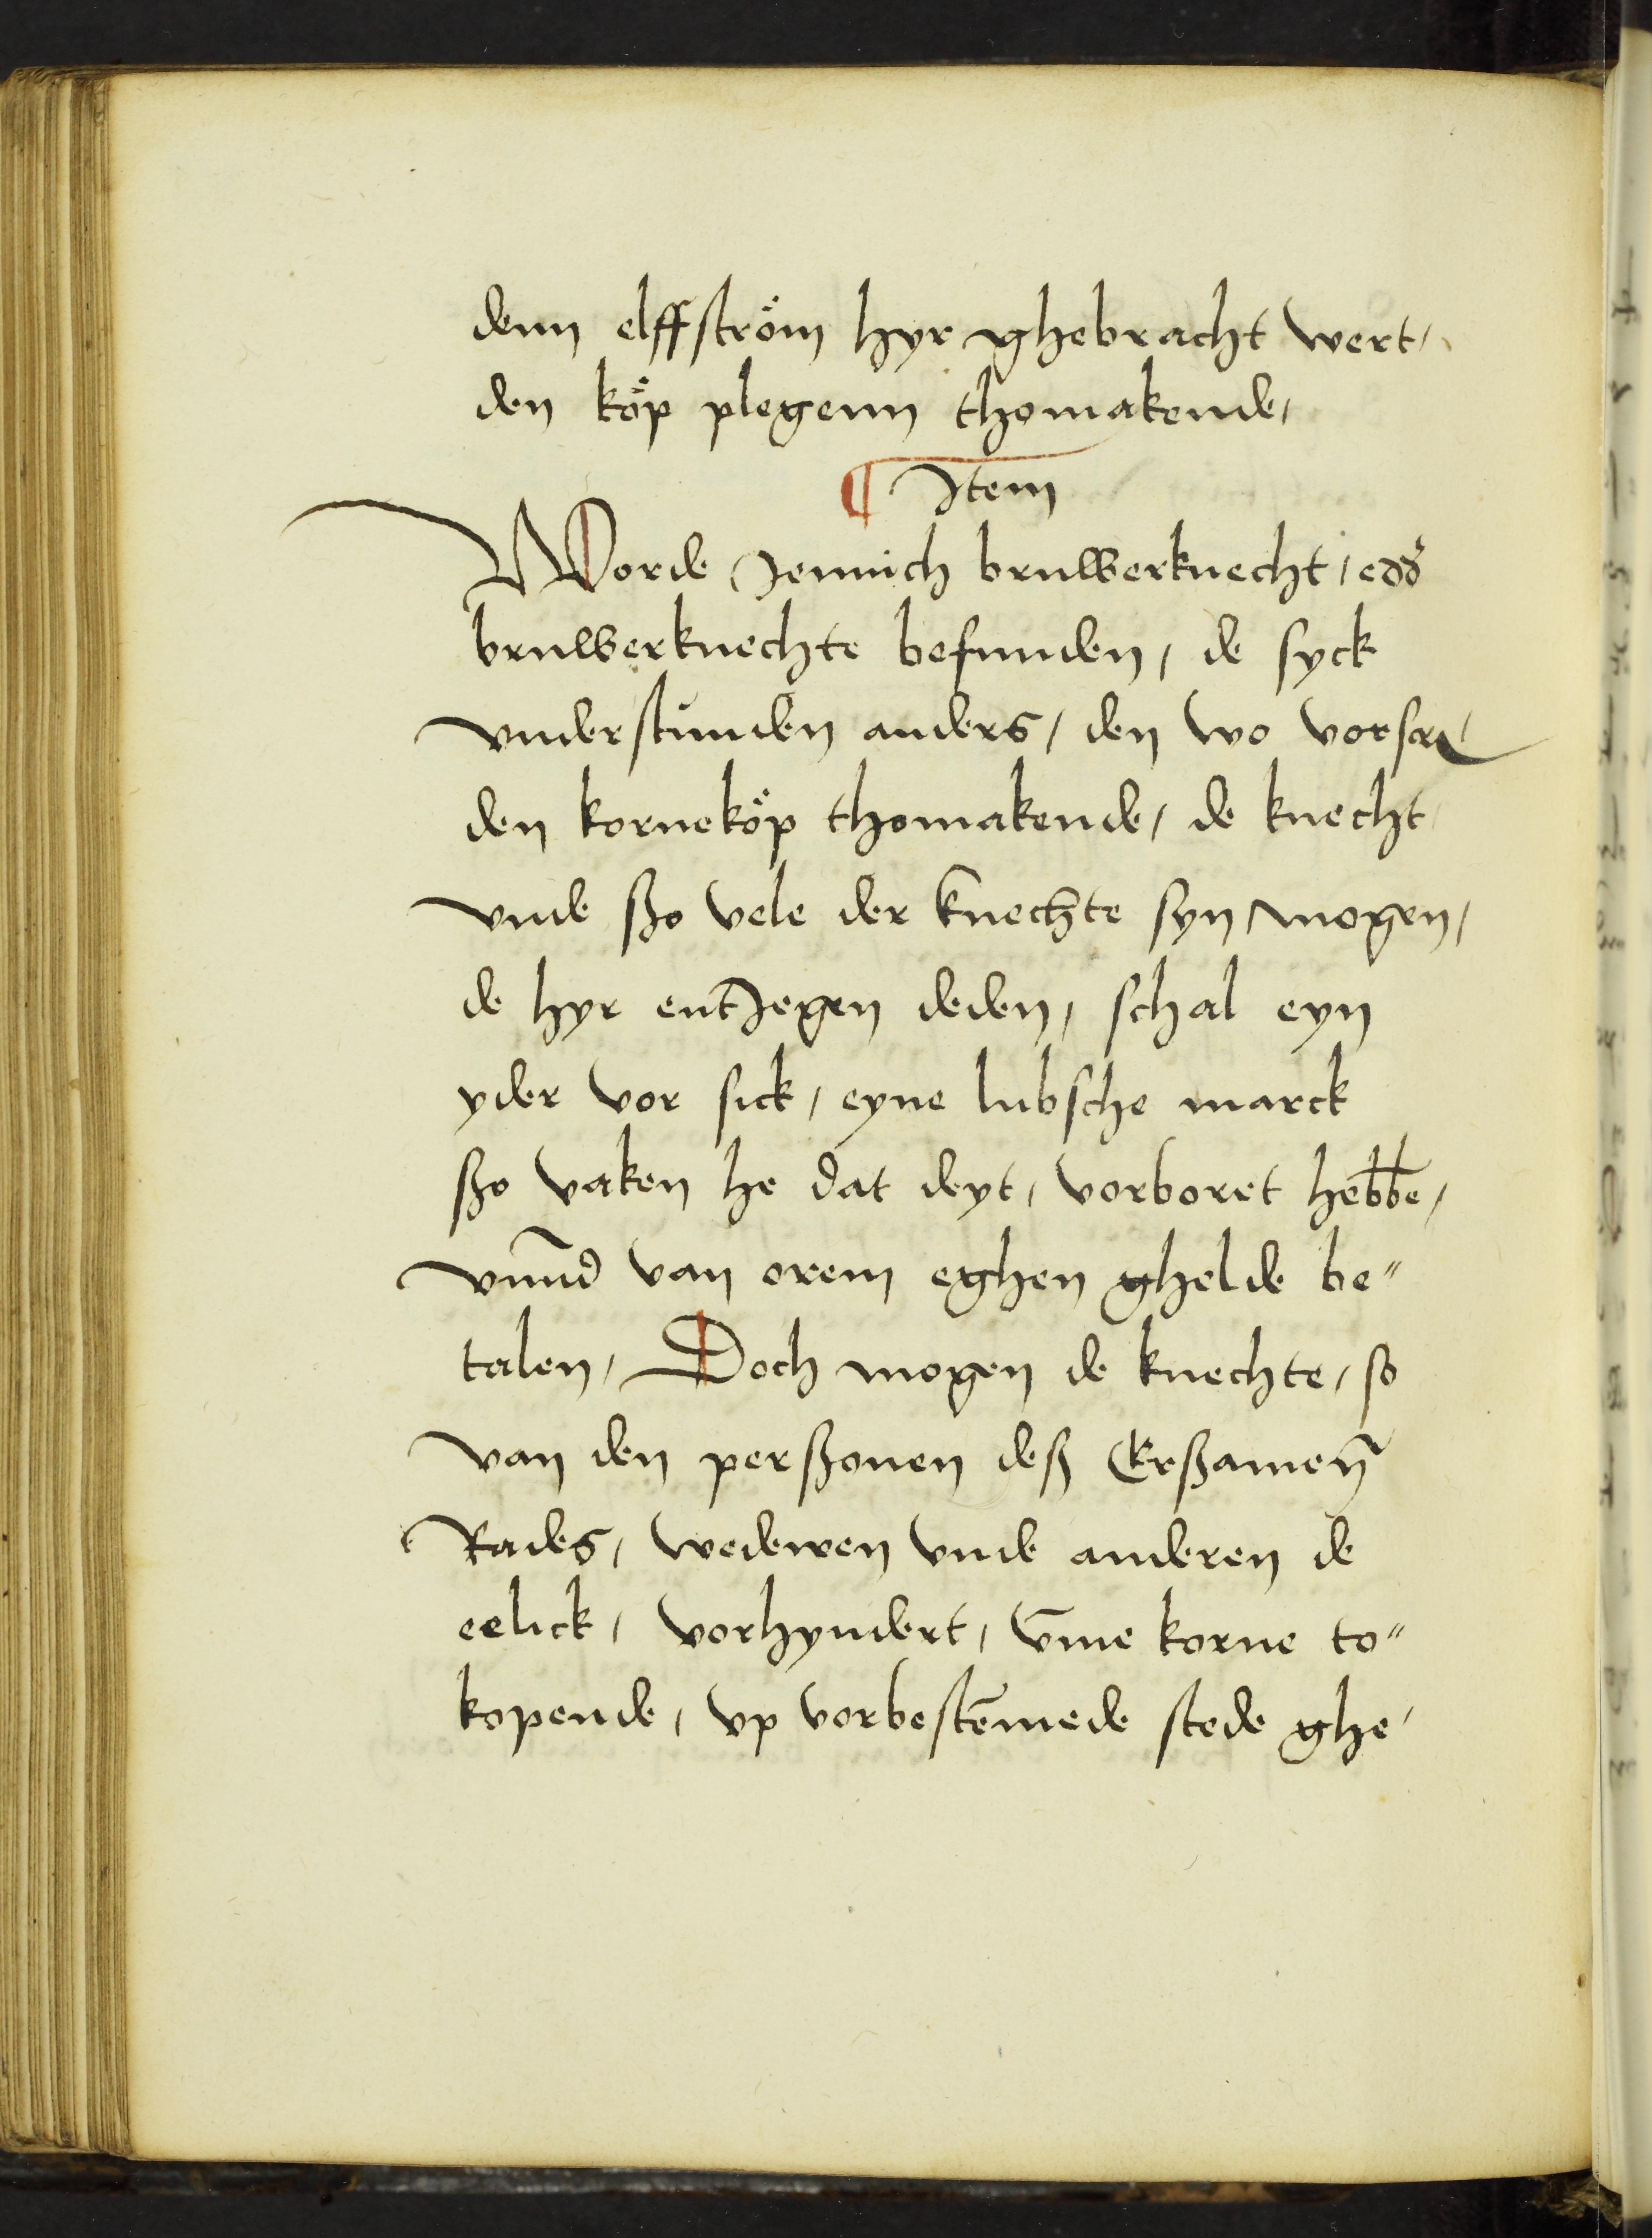 denn elffström hyr ghebracht wert /
den köp plegenn thomakende /
¶ Item
Worde Jennich bruwerknecht / edd̕
bruwerknechte befunden / de syck
vnderstunden anders / den wo vorscr̄
den korneköp thomakende / de knecht
vnde ßo vele der knechte syn mogen /
de hyr entJegen deden / schal eyn
yder vor sick / eyne lubsche marck
ßo vaken he dat deyt / vorboret hebbe /
vnnd van orem eghen ghelde be"
talen / Doch mogen de knechte / so
van den perßonen deß Erßamen̄
Rades / wedewen vnde anderen de
eelick / vorhyndert / vm̄e korne to"
kopende / vp vorbestēmede stede ghe /